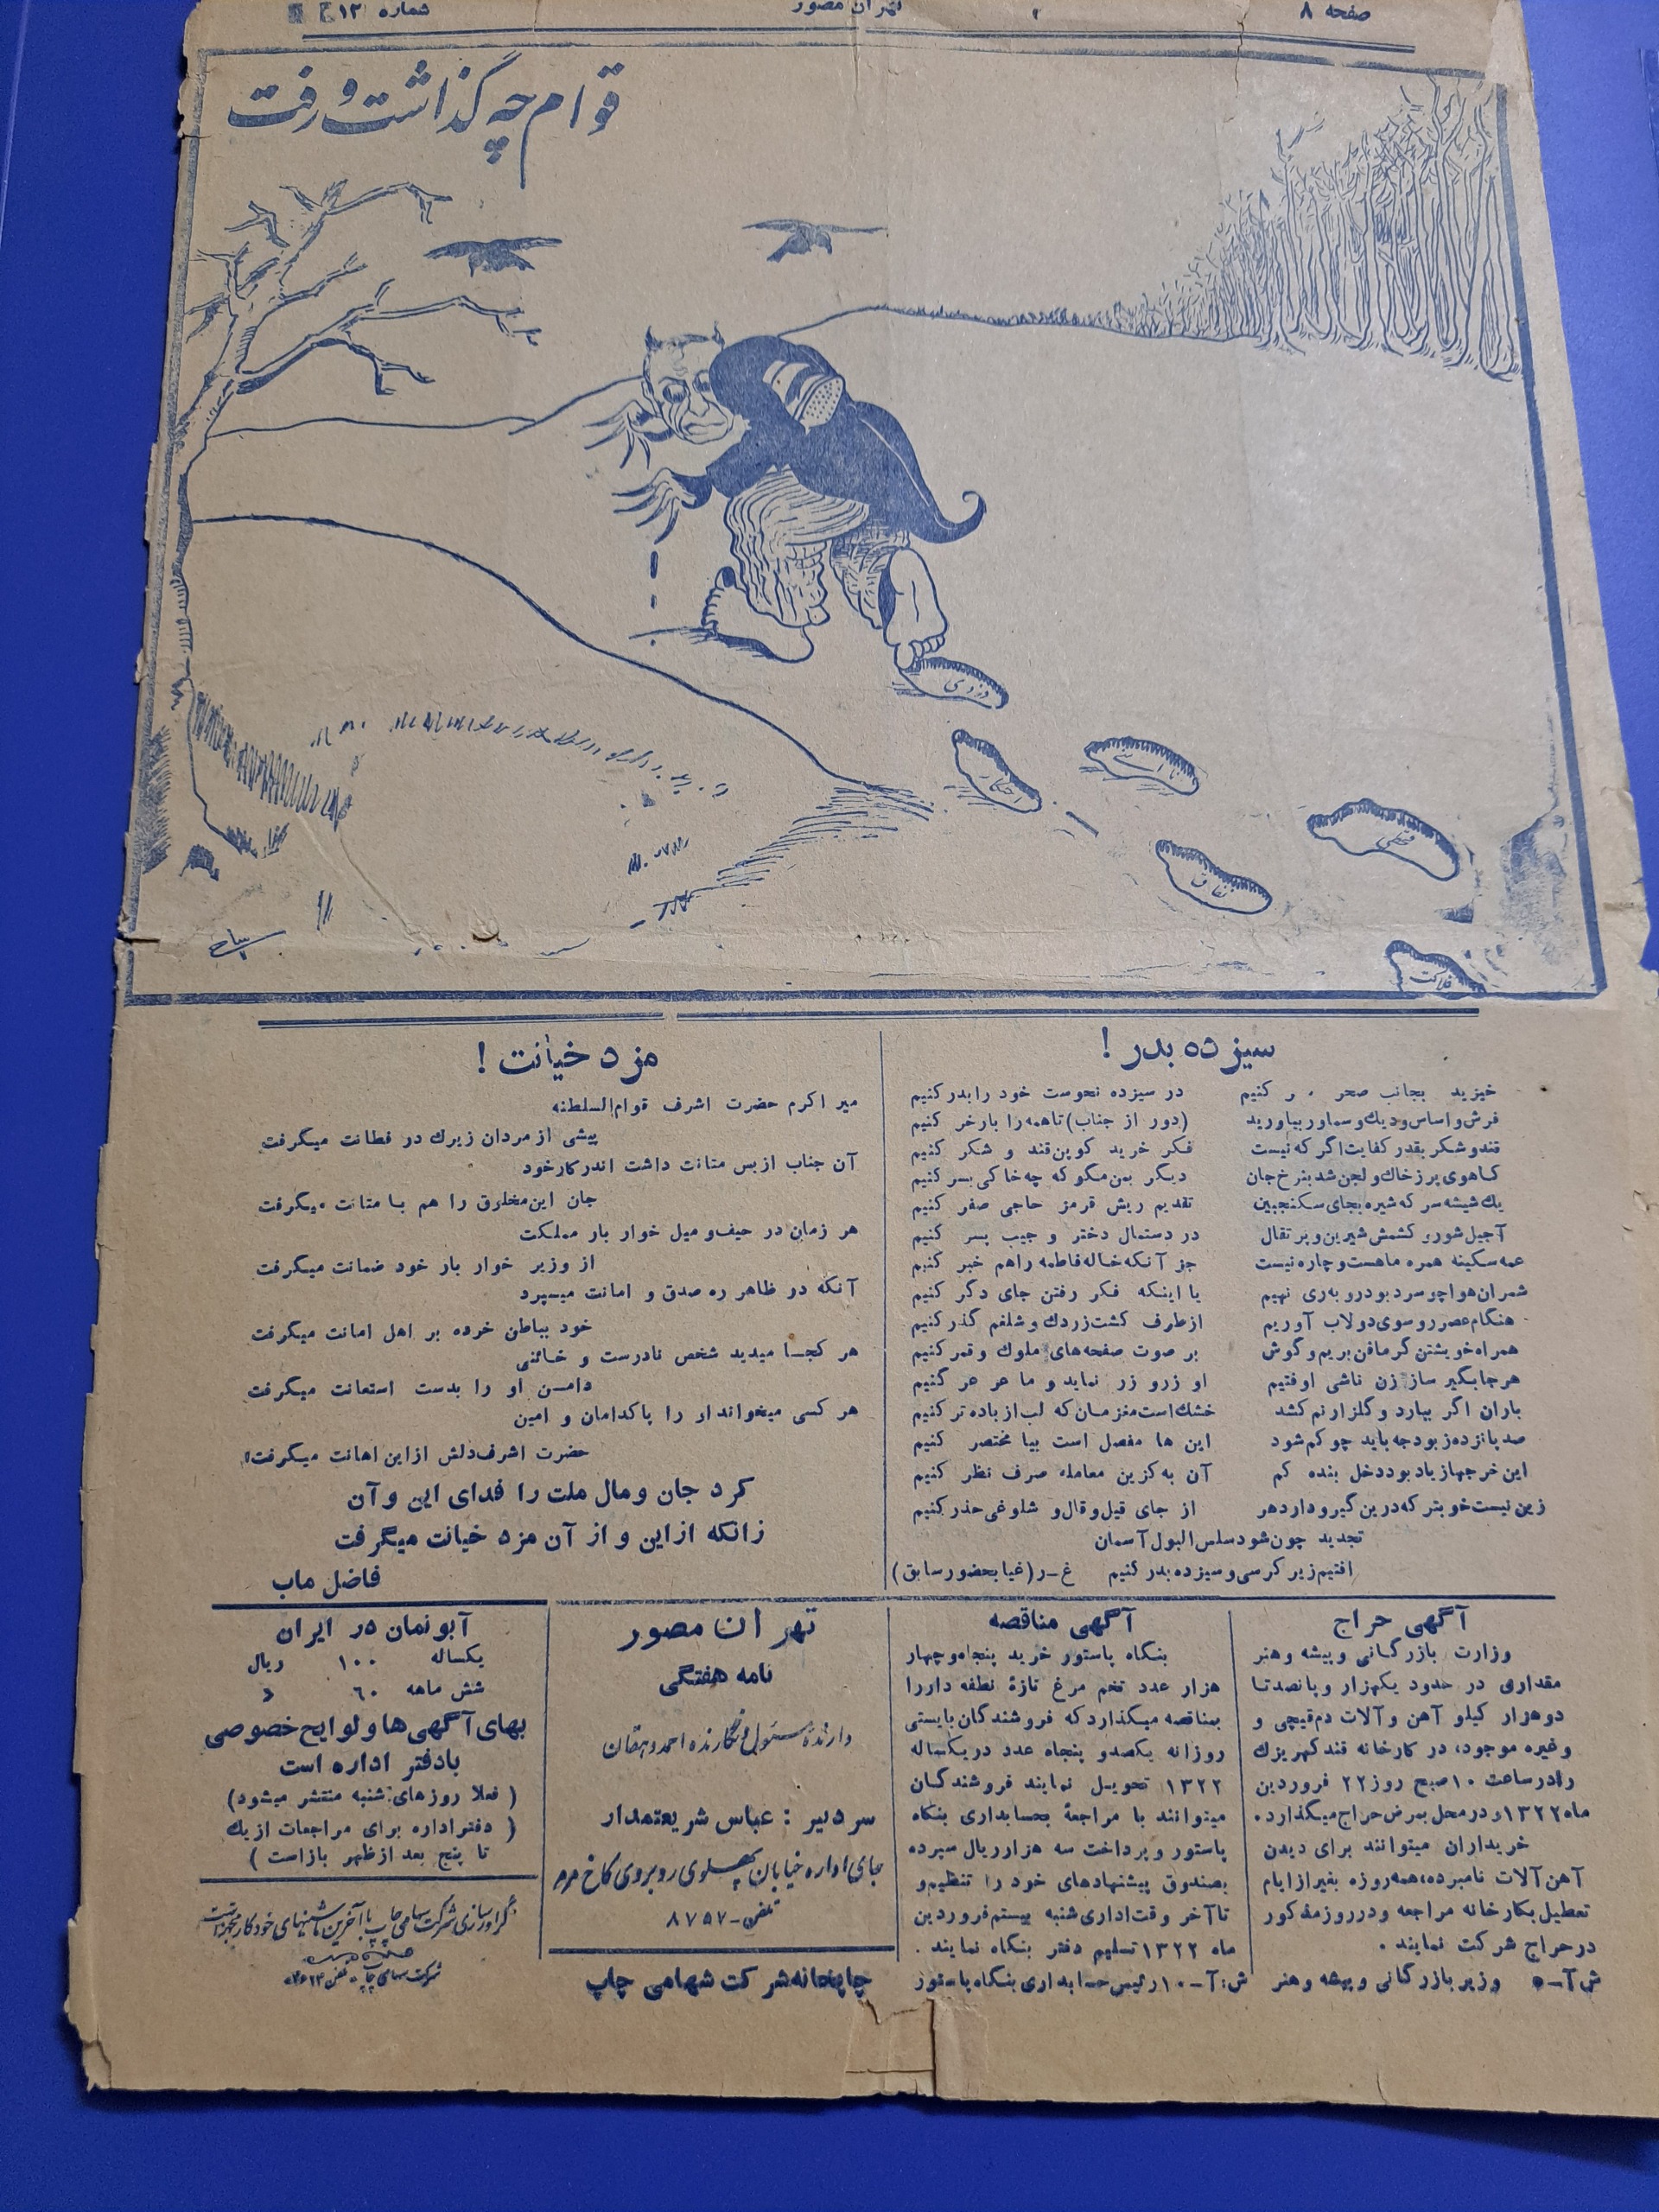 صفحه ۸
تهران مصور
شماره ۱۲
قوام چه گذاشت و رفت
دزدی
احتکار
ناامنی
نفاق
قحطی
فلاکت
سیزده بدر !
خیزید بجانب صحر و کنیم در سیزده نحوست خود را بدر کنیم
فرش و اساس و دیك و سماور بیاورید (دور از جناب) تا همه را بار خر کنیم
قند و شکر بقدر کفایت اگر که نیست فکر خرید کوپن قند و شکر کنیم
کاهوی پر ز خاك و لجن شد بنرخ جان دیگر بمن مگو که چه خاکی بسر کنیم
یك شیشه سر که شیره بجای سکنجبین تقدیم ریش قرمز حاجی صفر کنیم
آجیل شور و کشمش شیرین و پرتقال در دستمال دختر و جیب پسر کنیم
عمه سکینه همره ماهست و چاره نیست جز آنکه خاله فاطمه را هم خبر کنیم
شمران هوا چو سرد بود رو به ری نهیم با اینکه فکر رفتن جای دگر کنیم
هنگام عصر رو سوی دولاب آوریم از طرف کشت زردك و شلغم گذر کنیم
همراه خویشتن گرمافن بریم و گوش بر صوت صفحه های ملوك و قمر کنیم
هر جا بگیر ساز زن ناشی اوفتیم او زر و زر نماید و ما عر عر کنیم
باران اگر ببارد و گلزار نم کشد خشك است مغزمان که لب از باده تر کنیم
صد پانزده ز بودجه باید چو کم شود این ها مفصل است بیا مختصر کنیم
این خرجها زیاد بود دخل بنده کم آن به کزین معامله صرف نظر کنیم
زین نیست خوبتر که درین گیر و دار دهر از جای قیل و قال و شلوغی حذر کنیم
تجدید چون شود سلس البول آسمان
افتیم زیر کرسی و سیزده بدر کنیم غ-ر (غیابحضور سابق)
مزد خیانت !
میر اکرم حضرت اشرف قوام السلطنه
پیشی از مردان زیرك در فطانت میگرفت
آن جناب از بس متانت داشت اندر کار خود
جان این مخلوق را هم با متانت میگرفت
هر زمان در حیف و میل خوار بار مملکت
از وزیر خوار بار خود ضمانت میگرفت
آنکه در ظاهر ره صدق و امانت میسپرد
خود بباطن خرده بر اهل امانت میگرفت
هر کجا میدید شخص نادرست و خائنی
دامن او را بدست استعانت میگرفت
هر کسی میخواند او را پاکدامان و امین
حضرت اشرف دلش از این اهانت میگرفت
کرد جان و مال ملت را فدای این و آن
زانکه از این و از آن مزد خیانت میگرفت
فاضل ماب
آگهی حراج
وزارت بازرگانی و پیشه و هنر
مقداری در حدود یکهزار و پانصد تا
دو هزار کیلو آهن و آلات دم قیچی و
و غیره موجود، در کارخانه قند کهریزك
را در ساعت ۱۰ صبح روز ۲۲ فروردین
ماه ۱۳۲۲ و در محل بمرض حراج میگذارد.
خریداران میتوانند برای دیدن
آهن آلات نامبرده، همه روزه بغیر از ایام
تعطیل بکارخانه مراجعه و در روز مذکور
در حراج شرکت نمایند .
ش آ-۵ وزیر بازرگانی و پیشه و هنر
آگهی مناقصه
بنگاه پاستور خرید پنجاه و چهار
هزار عدد تخم مرغ تازهٔ نطفه دار را
بمناقصه میگذارد که فروشندگان بایستی
روزانه یکصد و پنجاه عدد در یکساله
۱۳۲۲ تحویل نمایند فروشندگان
میتوانند با مراجعهٔ بحسابداری بنگاه
پاستور و پرداخت سه هزار ریال سپرده
بصندوق پیشنهادهای خود را تنظیم و
تا آخر وقت اداری شنبه بیستم فروردین
ماه ۱۳۲۲ تسلیم دفتر بنگاه نمایند .
ش:آ-۱۰ رئیس حسابداری بنگاه پاستور
تهران مصور
نامه هفتگی
دارنده و مسئول و نگارنده احمد دهقان
سردبیر : عباس شریعتمدار
جای اداره خیابان پهلوی روبروی کاخ مرمر
تلفن - ۸۷۵۷
چاپخانه شرکت سهامی چاپ
آبونمان در ایران
یکساله ۱۰۰ ریال
شش ماهه ۶۰ »
بهای آگهی ها و لوایح خصوصی
با دفتر اداره است
( فعلا روزهای شنبه منتشر میشود)
( دفتر اداره برای مراجعات از یك
تا پنج بعد از ظهر باز است )
گراورسازی شرکت سهامی چاپ با آخرین ماشینهای خودکار مجهز است
شرکت سهامی چاپ تلفن